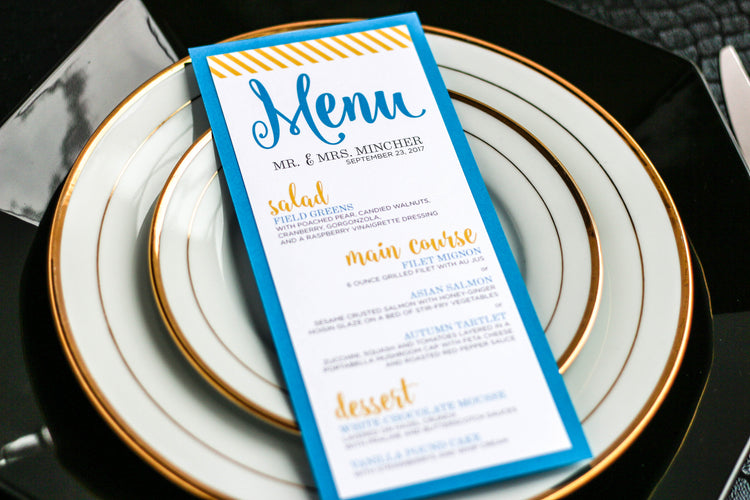 Menu
MR. & MRS. MINCHER
SEPTEMBER 23, 2017
salad
FIELD GREENS
WITH POACHED PEAR, CANDIED WALNUTS,
CRANBERRY, GORGONZOLA,
AND A RASPBERRY VINAIGRETTE DRESSING
main course
FILET MIGNON
6 OUNCE GRILLED FILET WITH AU JUS
or
ASIAN SALMON
SESAME CRUSTED SALMON WITH HONEY-GINGER
HOISIN GLAZE ON A BED OF STIR-FRY VEGETABLES
or
AUTUMN TARTLET
ZUCCHINI, SQUASH AND TOMATOES LAYERED IN A
PORTABELLA MUSHROOM CAP WITH FETA CHEESE
AND ROASTED RED PEPPER SAUCE
dessert
WHITE CHOCOLATE MOUSSE
LAYERED ON HAZEL CRUNCH
WITH PRALINE AND BUTTERSCOTCH SAUCES
VANILLA POUND CAKE
WITH STRAWBERRIES AND WHIP CREAM